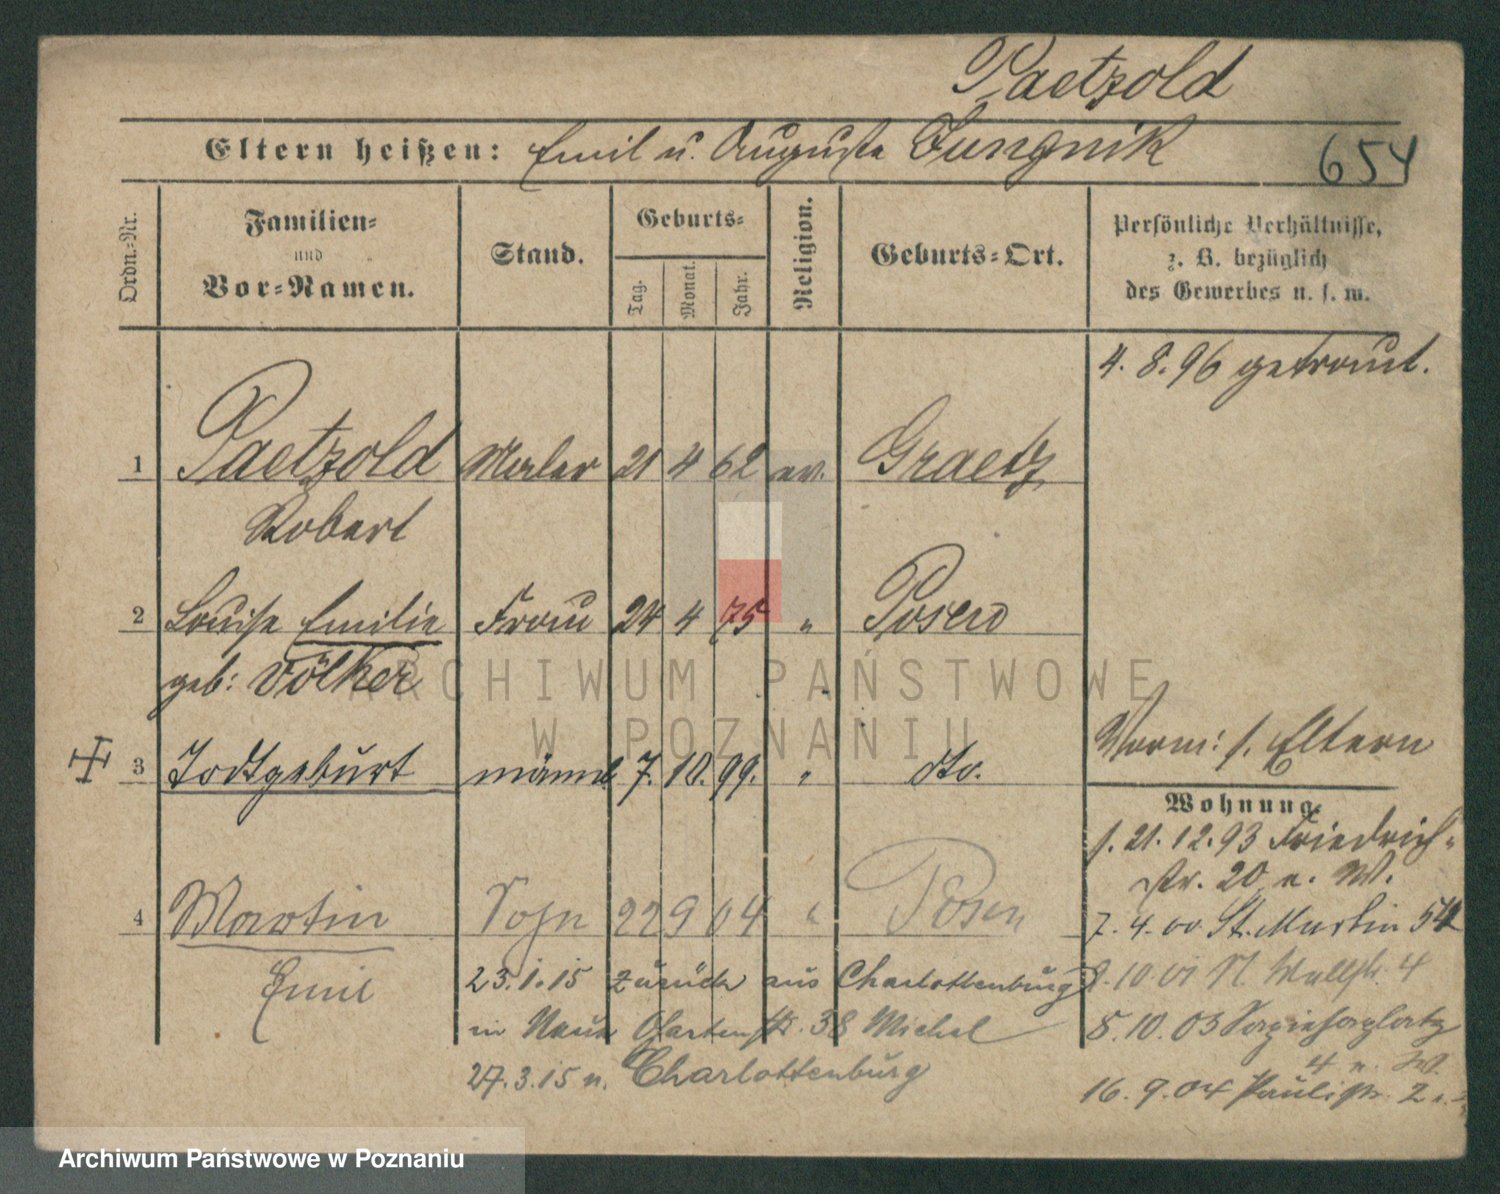 Paetzold
Eltern heißen: Emil u. Auguste Jungnik
654
Ordn.-Nr.
Familien-
und
Vor-Namen.
Stand.
Geburts-
Tag.
Monat.
Jahr.
Religion.
Geburts-Ort.
Persönliche Verhältnisse,
z. B. bezüglich
des Gewerbes u. s. w.
4. 8. 96 getraut.
1 Paetzold Maler 21 4 62 ev. Graetz
Robert
2 Louise Emilie Frau 24 4 75 " Posen
geb: Völker
ARCHIWUM PAŃSTWOWE
W POZNANIU
Vorm: s. Eltern
3 Todtgeburt männl 7. 10. 99. " dto.
Wohnung.
s. 21. 12. 93 Friedrich-
str. 20 n. W.
4 Martin Sohn 22 9 04 " Posen
7. 4. 00 St. Martin 54
Emil
23. 1. 15 zurück aus Charlottenburg
10. 01 N. Wallstr. 4
in Neue Gartenstr. 38 Michel
5. 10. 03 Sapiehaplatz
4 n. W.
27. 3. 15 n. Charlottenburg
16. 9. 04 Paulistr. 2
Archiwum Państwowe w Poznaniu